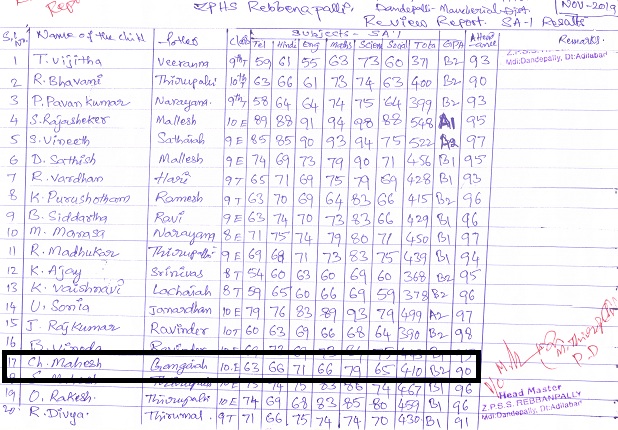 ZPHS Rebbenapally, Dandepally - Mancherial - Dist. NOV-2019
Review Report. SA-1 Results
Subjects - SA-1
S.No. Name of the child Father Class Tel Hindi Eng Maths Science Social Total GPA Attendance Remarks.
Z.P.S.S. REBBANPALLY
Mdl:Dandepally, Dt:Adilabad
1 T. Vijitha Veeranna 9thT 59 61 55 63 73 60 371 B2 93
2 R. Bhavani Thirupathi 10thT 63 66 61 73 74 63 400 B2 90
3 P. Pavan kumar Narayana. 9thT 58 64 64 74 75 64 399 B2 93
4 S. Rajasheker Mallesh 10E 89 88 91 94 98 88 548 A1 95
5 S. Vineeth Sathaiah 9E 85 85 90 93 94 75 522 A2 97
6 D. Sathish Mallesh 9E 74 69 73 79 90 71 456 B1 95
7 R. Vardhan Hari 9T 65 71 69 75 79 69 428 B1 93
8 K. Purushotham Ramesh 9T 63 70 69 64 83 66 415 B2 96
9 B. Siddartha Ravi 9E 63 74 70 73 83 66 429 B1 96
10 M. Manasa Narayana 8E 71 75 74 79 80 71 450 B1 97
11 R. Madhukar Thirupathi 9E 69 68 71 73 83 75 439 B1 94
12 K. Ajay Srinivas 8T 54 60 63 60 69 60 368 B2 95
13 K. Vaishnavi Lachaiah 8T 59 65 60 66 69 59 378 B2 96
14 U. Sonia Janardhan 10E 79 76 83 89 93 79 499 A2 97
15 J. Raj Kumar Ravinder 10T 60 63 69 66 68 64 390 B2 98
16 B. Vinoda Ravinder
17 Ch. Mahesh Gangaiah 10.E 63 66 71 66 79 65 410 B2 90
Thirupathi 10E 73 74 75 83 86 74 467 B1 96
19 O. Rakesh Thirupathi 10E 74 69 68 83 85 80 459 B1 96
20 R. Divya. Thirumal. 9T 71 66 75 74 74 70 430 B1 91
P.D
Head Master
Z.P.S.S. REBBANPALLY
Mdl:Dandepally, Dt:Adilabad